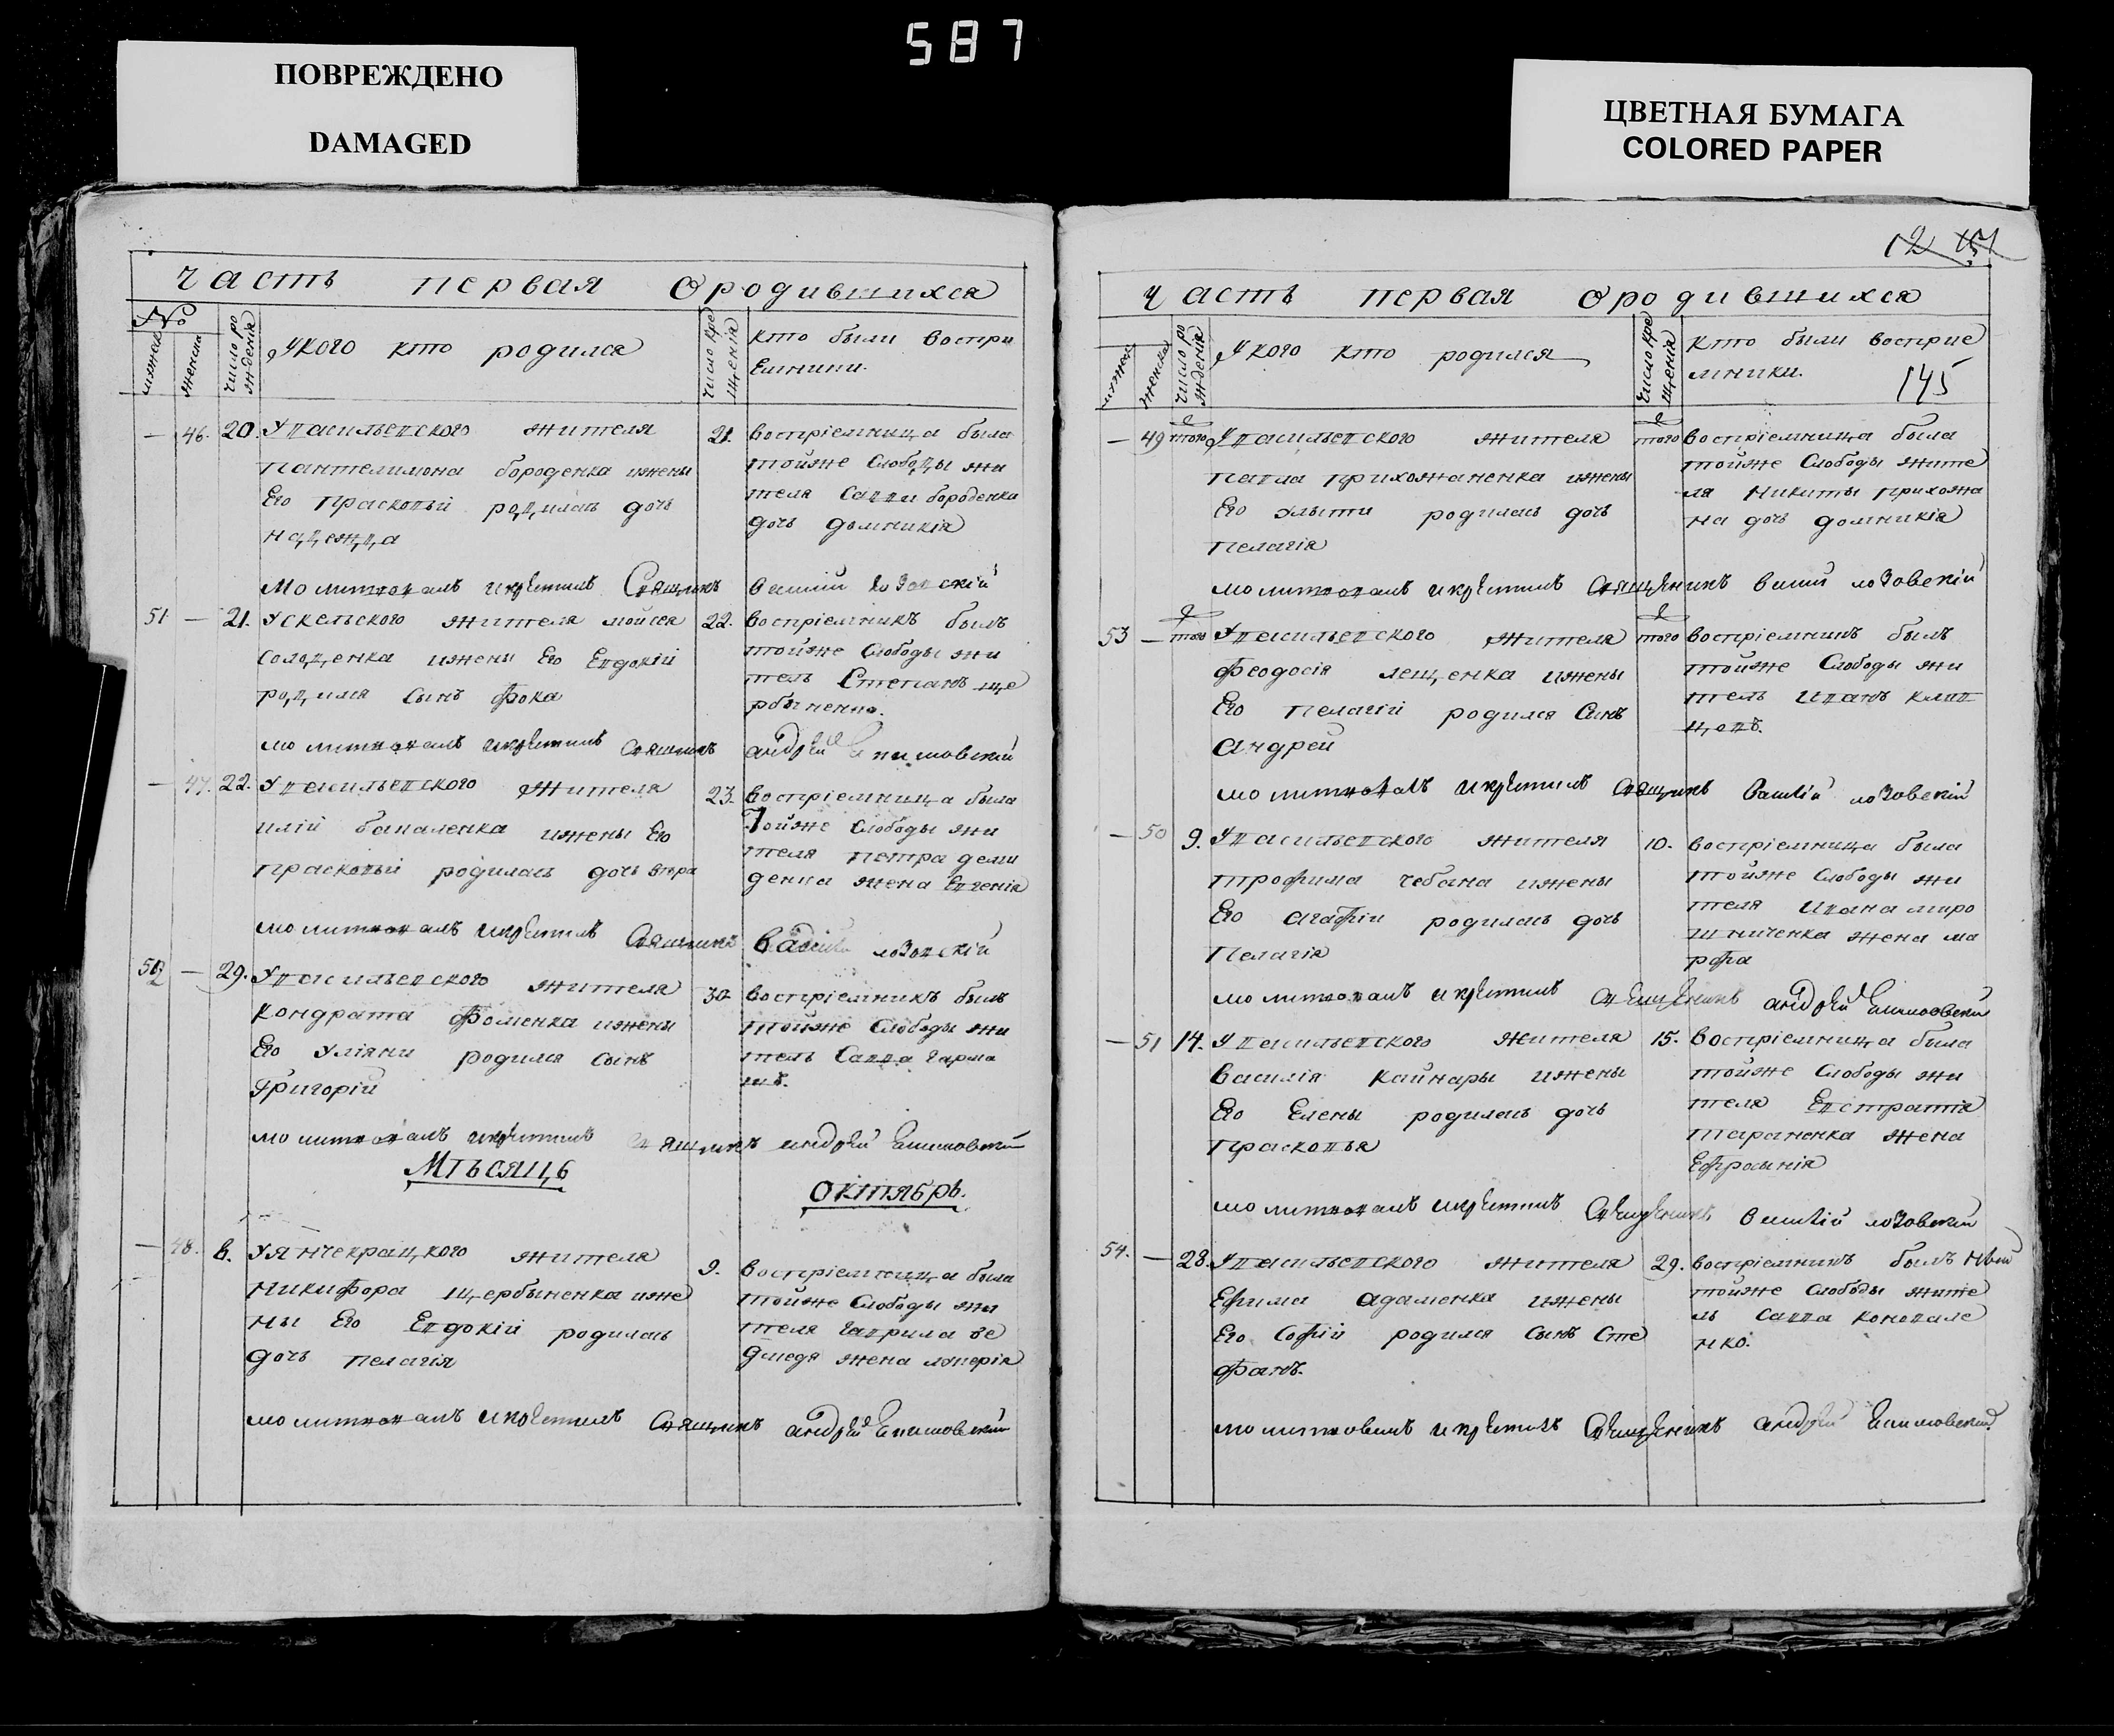 587
ПОВРЕЖДЕНО
DAMAGED
ЦВЕТНАЯ БУМАГА
COLORED PAPER
Часть первая Ородившихся
№
мужеск
женска
число ро
жденія
Укого кто родился
число кре
щенія
кто были воспри
Емники.
— 46. 20. Увасильевского жителя
Пантелимона бороденка ижены
Его Праскопьи родилась дочь
надежда
21. Воспріемница была
тойже Слободы жи
теля Саввы бороденка
дочь домникія
Молитвовалъ икрестилъ Священикъ Василій Лозовскій
51 — 21. Ускельского жителя мойсея
Солоденка ижены Его Евдокіи
родился Сынъ Фока
22. воспріемникъ былъ
тойже Слободы жи
тель Степанъ ще
рбыненко.
молитвовалъ икрестилъ Священикъ андрей
— 47. 22. Увасильевского жителя
иліи бапаленка ижены Его
праскопьи родилась дочь
23. воспріемница была
Тойже Слободы жи
теля Петра деми
денка жена Евгенія
молитвовалъ икрестилъ Священикъ Василій лозовскій
52 — 29. Увасильевского жителя
Кондрата Фоменка ижены
Его Уліяны родился сынъ
Григорій
30 воспріемникъ былъ
тойже Слободы жи
тель Савва гарма
шъ.
молитвовалъ икрестилъ Священикъ андрей
Мѣсяцъ
Октябрь.
— 48. 8. Уянчекрацкого жителя
Никифора щербыненка иже
ны Его Евдокіи родилась
дочь пелагія
9. Воспріемница была
тойже Слободы жи
теля гаврила ве
дмедя жена
молитвовалъ икрестилъ Священикъ андрей
12 151
Часть первая Ородившихся
мужеск
женска
число ро
жденія
Укого кто родился
число кре
щенія
Кто были восприе
мники.
145
— 49 того Увасильевского жителя
павла прихожаненка ижены
Его Улыты родилась дочь
Пелагія
того воспріемница была
тойже Слободы жите
ля Никиты прихожа
на дочь домникія
молитвовалъ икрестилъ Священникъ Василій лозовскій
53 — того Увасильевского жителя
Феодосія лещенка ижены
Его Пелагіи родился Сынъ
Андрей
того воспріемникъ былъ
тойже Слободы жи
тель Иванъ клив
цовъ.
молитвовалъ икрестилъ Священикъ Василій лозовскій
— 50 9. Увасильевского жителя
трофима чебана ижены
Его агафіи родилась дочь
Пелагія
10. воспріемница была
тойже Слободы жи
теля Ивана миро
шниченка жена ма
рфа
молитвовалъ икрестилъ Священникъ андрей
— 51 14. Увасильевского жителя
Василія кайнары ижены
Его Елены родилась дочь
Праскопья
15. Воспріемница была
тойже Слободы жи
теля Евстратія
тараненка жена
Ефросинія
молитвовалъ икрестилъ Священникъ Василій лозовскій
54. — 28. Увасильевского жителя
Ефима адаменка ижены
Его Софіи родился сынъ Сте
фанъ.
29. воспріемникъ былъ
тойже Слободы жите
ль Савва коновале
нко.
молитвовалъ икрестилъ Священникъ андрей